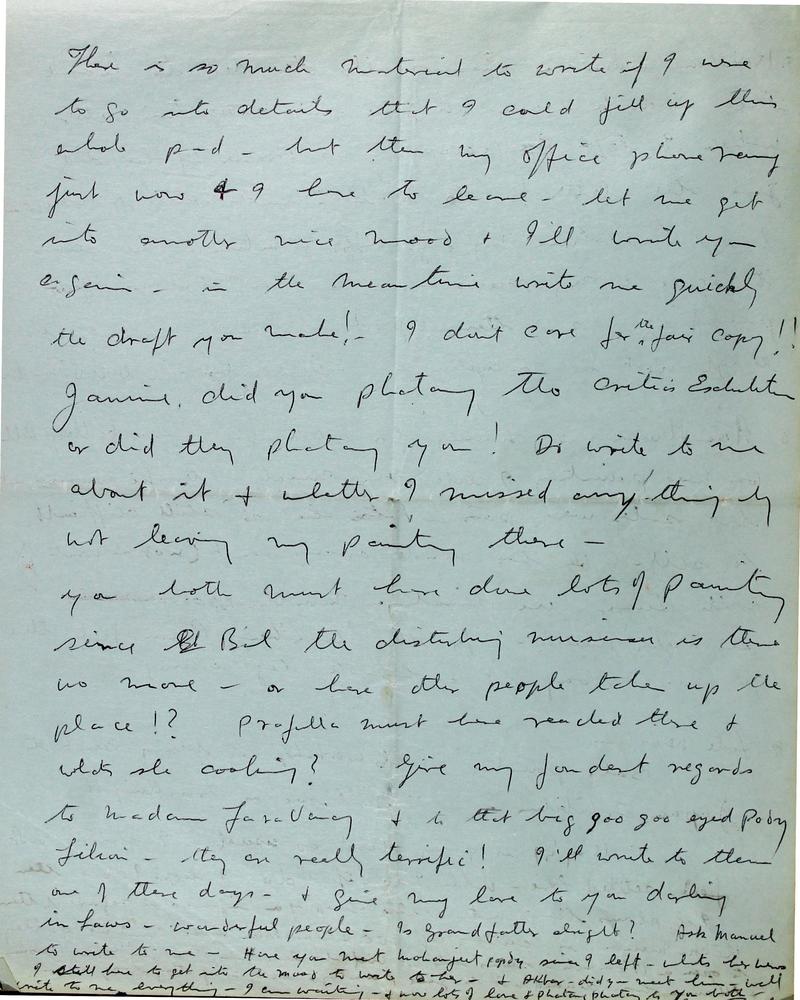 There is so much material to write if I were
to go into details that I could fill up this
whole pad – but then my office phone rang
just now & I have to leave – let me get
into another nice mood & I'll write you
again – in the meantime write me quickly
the draft you make! – I don't care for the fair copy!!
Janine, did you photang the critics Exhibition
or did they photang you! Do write to me
about it & whether I missed any thing by
not leaving my painting there –
you both must have done lots of painting
since Bal the disturbing nuisance is there
no more – or have other people taken up the
place!? Prafulla must have reached there &
whats she cooking? Give my fondest regards
to Madame & to that big goo goo eyed Pody
Lilian – they are really terrific! I'll write to them
one of these days – & give my love to you darling
in laws – wonderful people – Is Grandfather alright? Ask Manuel
to write to me – Have you met since I left – whats her news
I still have to get into the mood to write to her – & Akbar – didya meet him – well
write to me everything – I am waiting – & now lots of love & photang photang to you both